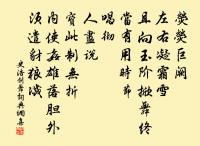 熒熒巨闕
左右凝霜雪
且向玉階掀舞終
當有用時節
唱徹
人盡說
寶此制無折
內使姦雄落膽外
須遣豺狼滅
史浩劍舞詞